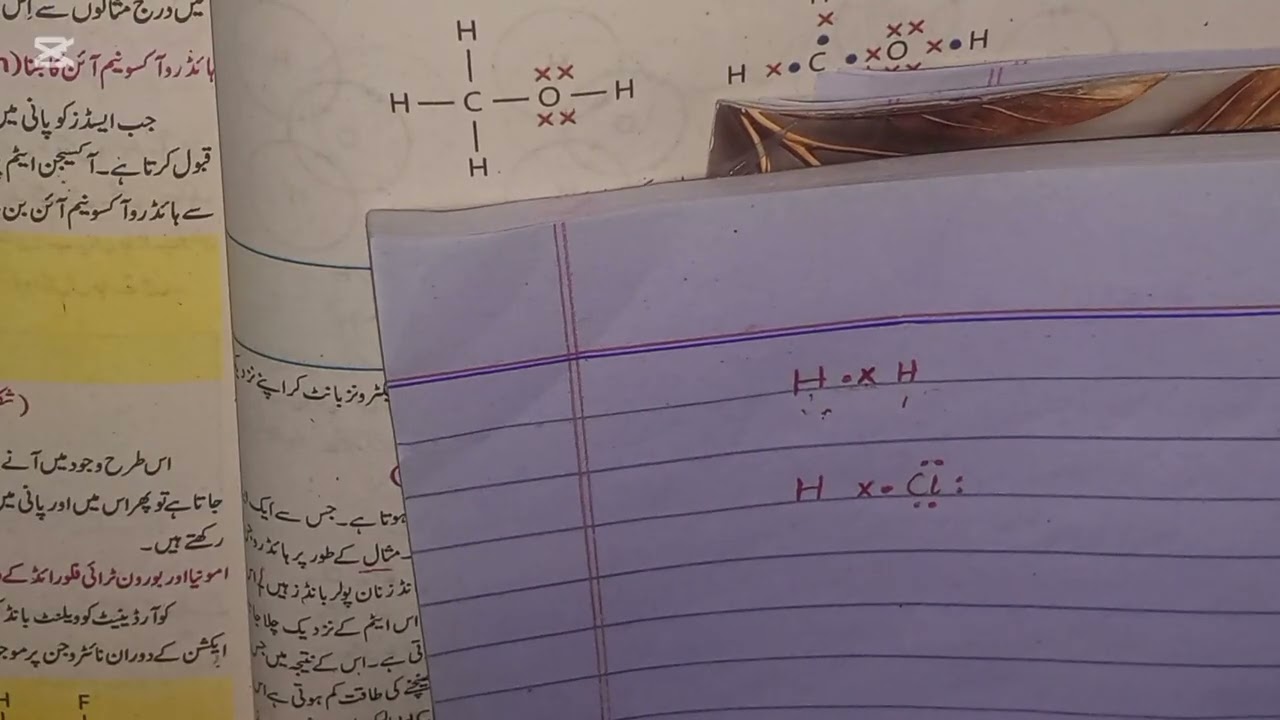 میں درج مثالوں سے اس
ہائڈروآکسونیم آئن کا بننا
جب ایسڈز کو پانی میں
قبول کرتا ہے۔ آکسیجن ایٹم
سے ہائڈروآکسونیم آئن بن
اس طرح وجود میں آنے
جاتا ہے تو پھر اس میں اور پانی میں
رکھتے ہیں۔
امونیا اور بورون ٹرائی فلورائڈ کے
کوآرڈینیٹ کوویلنٹ بانڈ
ایکشن کے دوران نائٹروجن پر موجود
H F
H
H — C — O — H
xx
xx
H
x
H x• C •x O x• H
xx
الیکٹرونز یا نٹ کر اپنے نزد
ہوتا ہے۔ جس سے ایک
۔ مثال کے طور پر ہائڈروجن
بانڈز نان پولر بانڈز ہیں
اس ایٹم کے نزدیک چلا جا
تی ہے۔ اس کے نتیجہ میں جس
کھینچنے کی طاقت کم ہوتی ہے اس
H •x H
H x• Cl :